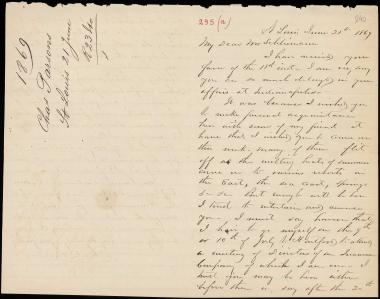 1869
Chas Parsons
St Louis 21 June
R 23 do
295 (a)
St Louis June 21st 1869
My dear Mr Schliemann
I have received your
favor of the 18th inst. I am sorry
you are so much delayed in your
affairs at Indianapolis.
It was because I wished you
to make personal acquaintance
here with some of my friends at
home that I wished you to come on
this week, many of them flit
off as the melting heats of summer
come on to various resorts in
the East, the sea coast, springs
&c &c. But enough will be here
I trust to entertain and amuse
you. I must say however that
I have to go myself on the 9th
or 10th of July to Hartford to attend
a meeting of Directors of an Insurance
Company of which I am one. I
trust you may be here either
before then or say after the 20th